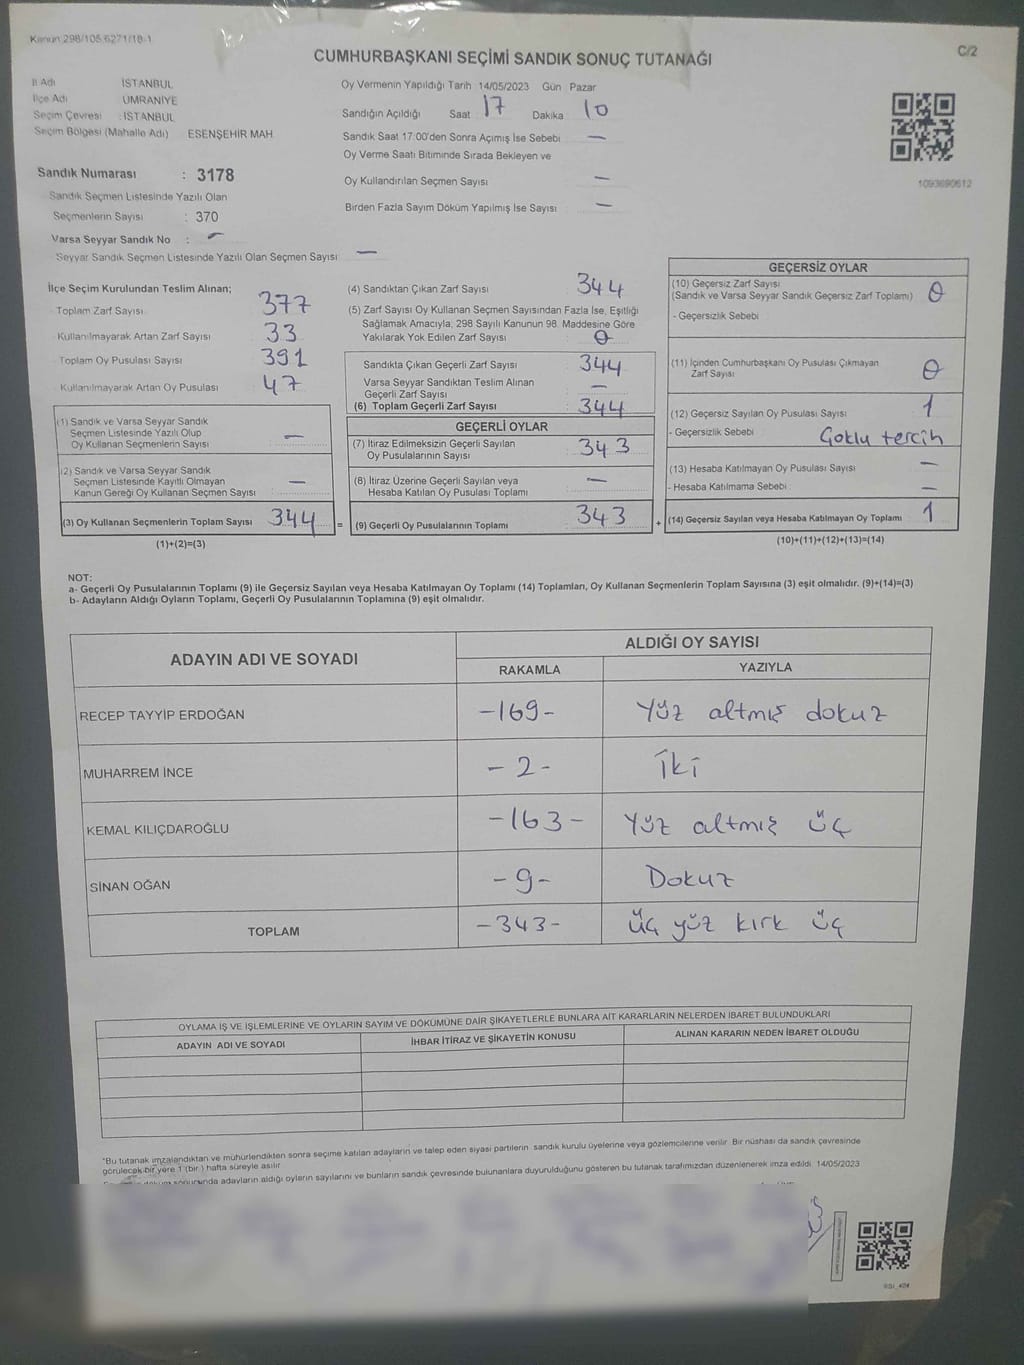 Kanun 298/105,6271/18-1
CUMHURBAŞKANI SEÇİMİ SANDIK SONUÇ TUTANAĞI
C/2
İl Adı İSTANBUL
İlçe Adı ÜMRANİYE
Seçim Çevresi : İSTANBUL
Seçim Bölgesi (Mahalle Adı) ESENŞEHİR MAH.
Sandık Numarası : 3178
Sandık Seçmen Listesinde Yazılı Olan
Seçmenlerin Sayısı : 370
Varsa Seyyar Sandık No : -
Seyyar Sandık Seçmen Listesinde Yazılı Olan Seçmen Sayısı: -
Oy Vermenin Yapıldığı Tarih 14/05/2023 Gün Pazar
Sandığın Açıldığı Saat 17 Dakika 10
Sandık Saat 17:00'den Sonra Açımış İse Sebebi -
Oy Verme Saati Bitiminde Sırada Bekleyen ve
Oy Kullandırılan Seçmen Sayısı -
Birden Fazla Sayım Döküm Yapılmış İse Sayısı -
1093690612
İlçe Seçim Kurulundan Teslim Alınan;
Toplam Zarf Sayısı 377
Kullanılmayarak Artan Zarf Sayısı 33
Toplam Oy Pusulası Sayısı 391
Kullanılmayarak Artan Oy Pusulası 47
(1) Sandık ve Varsa Seyyar Sandık
Seçmen Listesinde Yazılı Olup
Oy Kullanan Seçmenlerin Sayısı -
(2) Sandık ve Varsa Seyyar Sandık
Seçmen Listesinde Kayıtlı Olmayan
Kanun Gereği Oy Kullanan Seçmen Sayısı -
(3) Oy Kullanan Seçmenlerin Toplam Sayısı 344 =
(1)+(2)=(3)
(4) Sandıktan Çıkan Zarf Sayısı 344
(5) Zarf Sayısı Oy Kullanan Seçmen Sayısından Fazla İse, Eşitliği
Sağlamak Amacıyla, 298 Sayılı Kanunun 98. Maddesine Göre
Yakılarak Yok Edilen Zarf Sayısı 0
Sandıkta Çıkan Geçerli Zarf Sayısı 344
Varsa Seyyar Sandıktan Teslim Alınan
Geçerli Zarf Sayısı -
(6) Toplam Geçerli Zarf Sayısı 344
GEÇERLİ OYLAR
(7) İtiraz Edilmeksizin Geçerli Sayılan
Oy Pusulalarının Sayısı 343
(8) İtiraz Üzerine Geçerli Sayılan veya
Hesaba Katılan Oy Pusulası Toplamı -
(9) Geçerli Oy Pusulalarının Toplamı 343 +
GEÇERSİZ OYLAR
(10) Geçersiz Zarf Sayısı
(Sandık ve Varsa Seyyar Sandık Geçersiz Zarf Toplamı) 0
- Geçersizlik Sebebi
(11) İçinden Cumhurbaşkanı Oy Pusulası Çıkmayan
Zarf Sayısı 0
(12) Geçersiz Sayılan Oy Pusulası Sayısı 1
- Geçersizlik Sebebi Çoklu tercih
(13) Hesaba Katılmayan Oy Pusulası Sayısı -
- Hesaba Katılmama Sebebi -
(14) Geçersiz Sayılan veya Hesaba Katılmayan Oy Toplamı 1
(10)+(11)+(12)+(13)=(14)
NOT:
a- Geçerli Oy Pusulalarının Toplamı (9) ile Geçersiz Sayılan veya Hesaba Katılmayan Oy Toplamı (14) Toplamları, Oy Kullanan Seçmenlerin Toplam Sayısına (3) eşit olmalıdır. (9)+(14)=(3)
b- Adayların Aldığı Oyların Toplamı, Geçerli Oy Pusulalarının Toplamına (9) eşit olmalıdır.
ADAYIN ADI VE SOYADI
ALDIĞI OY SAYISI
RAKAMLA YAZIYLA
RECEP TAYYİP ERDOĞAN -169- Yüz altmış dokuz
MUHARREM İNCE -2- İki
KEMAL KILIÇDAROĞLU -163- Yüz altmış üç
SİNAN OĞAN -9- Dokuz
TOPLAM -343- üç yüz kırk üç
OYLAMA İŞ VE İŞLEMLERİNE VE OYLARIN SAYIM VE DÖKÜMÜNE DAİR ŞİKAYETLERLE BUNLARA AİT KARARLARIN NELERDEN İBARET BULUNDUKLARI
ADAYIN ADI VE SOYADI İHBAR İTİRAZ VE ŞİKAYETİN KONUSU ALINAN KARARIN NEDEN İBARET OLDUĞU
*Bu tutanak imzalandıktan ve mühürlendikten sonra seçime katılan adayların ve talep eden siyasi partilerin sandık kurulu üyelerine veya gözlemcilerine verilir. Bir nüshası da sandık çevresinde
görülecek bir yere 1 (bir) hafta süreyle asılır.
sonucunda adayların aldığı oyların sayılarını ve bunların sandık çevresinde bulunanlara duyurulduğunu gösteren bu tutanak tarafımızdan düzenlenerek imza edildi. 14/05/2023